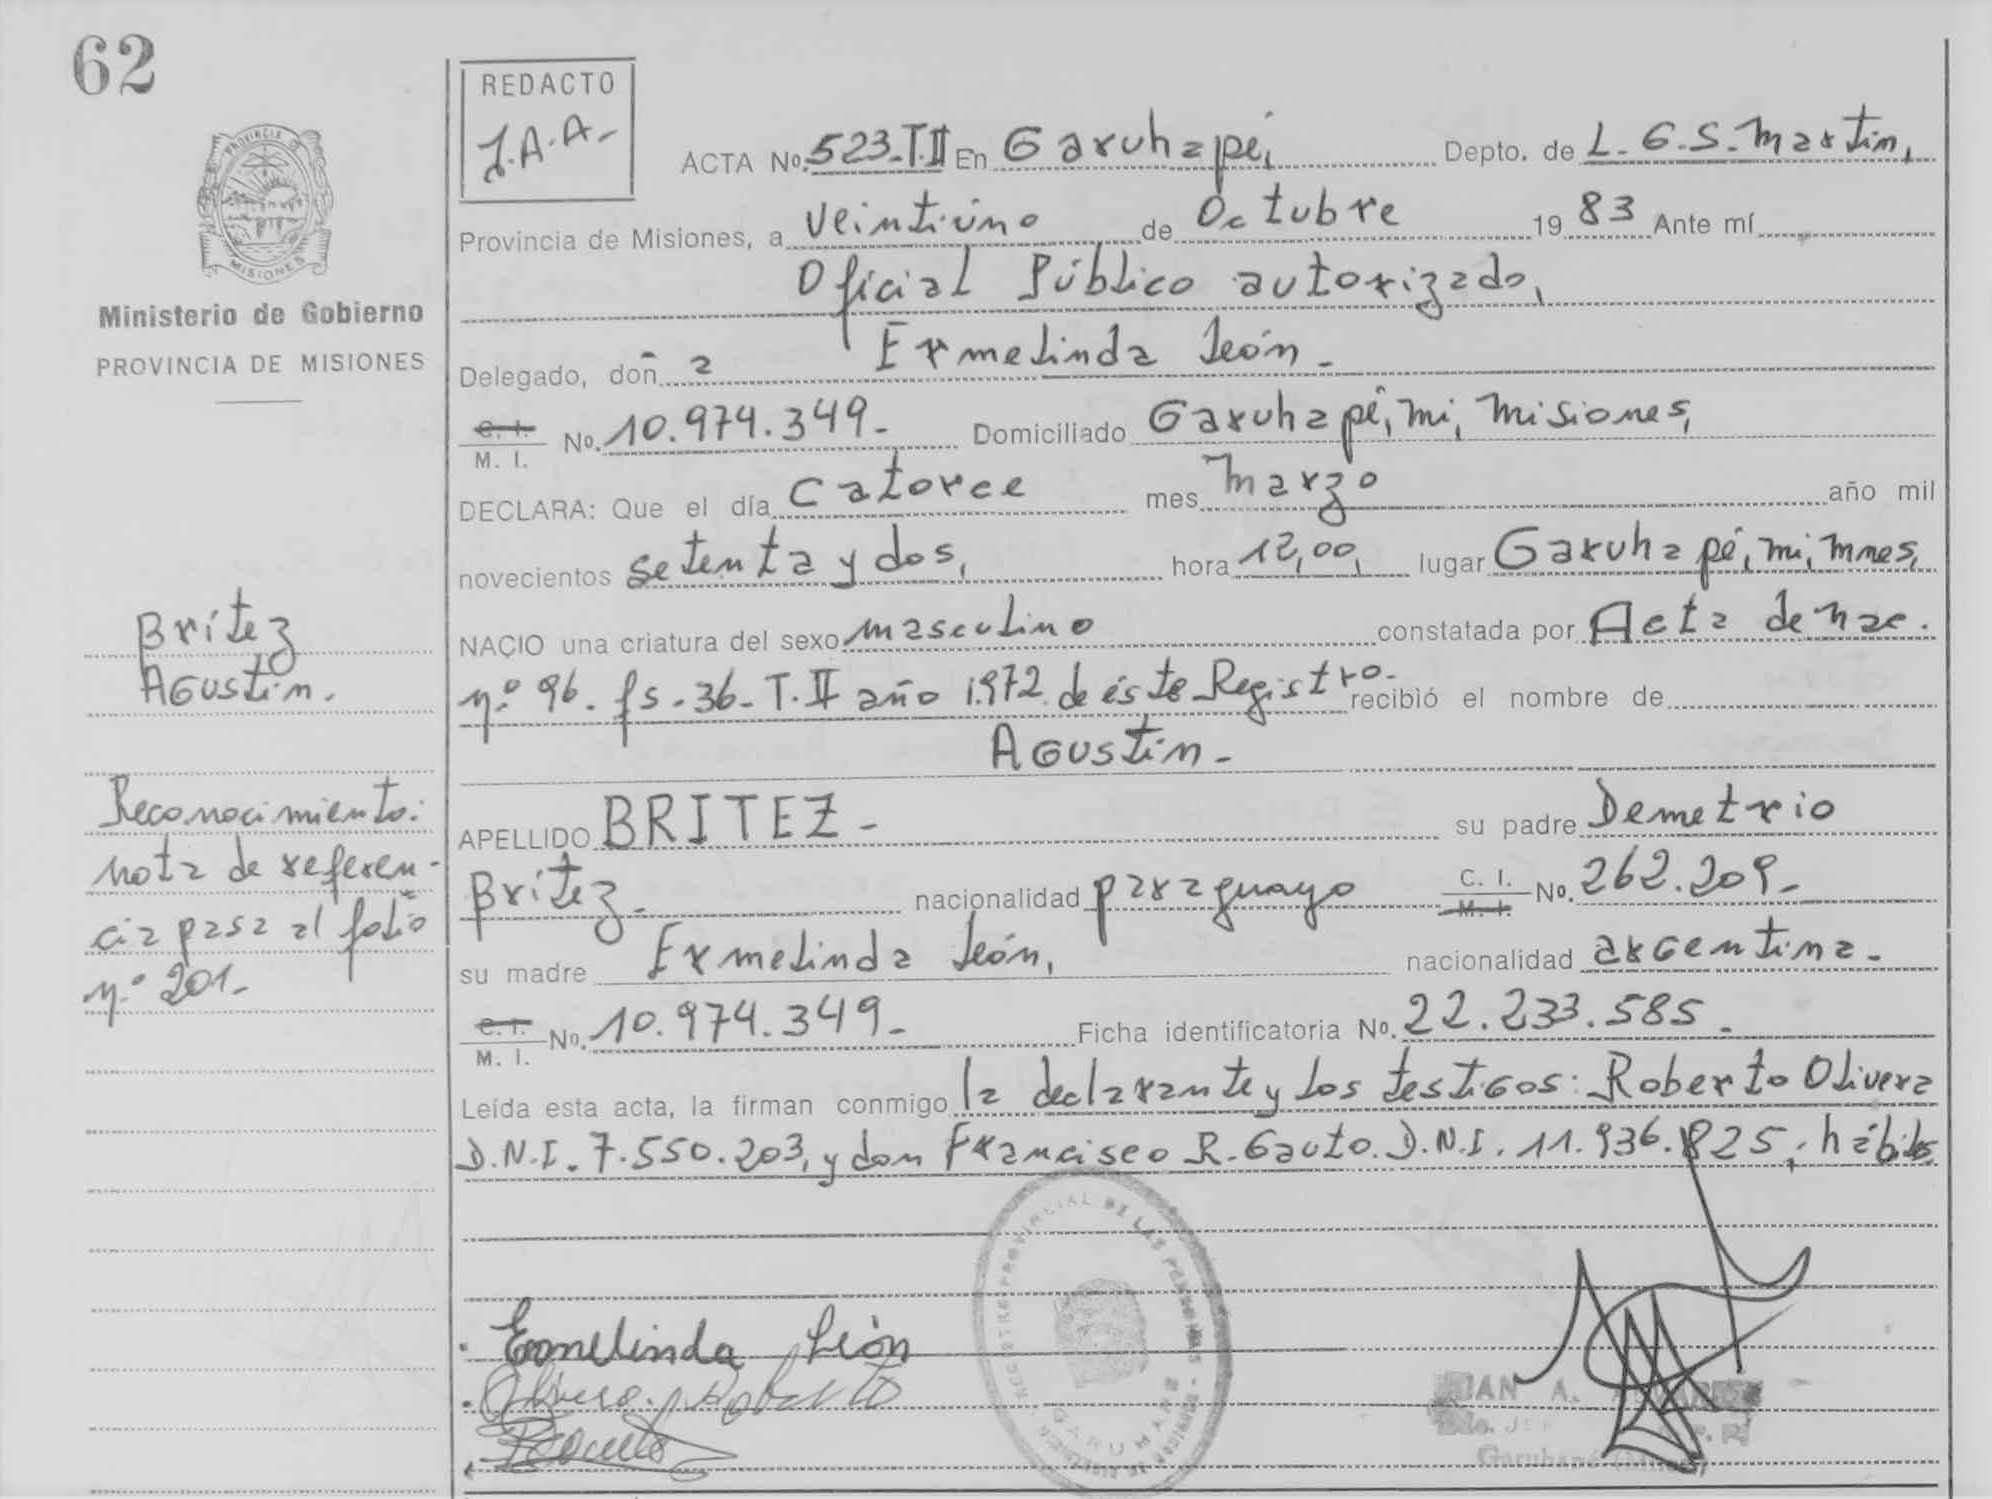 62
PROVINCIA DE
MISIONES
Ministerio de Gobierno
PROVINCIA DE MISIONES
REDACTO
J.A.A-
ACTA No. 523-T.II En Garuhapé, Depto. de L.G.S.Martin,
Provincia de Misiones, a veintiúno de Octubre 19 83 Ante mí
Oficial Público autorizado,
Delegado, doñ a Ermelinda León.-
C. I. / M. I. No. 10.974.349.- Domiciliado Garuhapé, mi, Misiones,
DECLARA: Que el día catorce mes marzo año mil
novecientos setenta y dos, hora 12,00, lugar Garuhapé, mi, Mnes,
NACIO una criatura del sexo masculino constatada por Acta de nac.
n.º 96. fs.36- T.II año 1.972 de éste Registro.- recibió el nombre de
Agustin.-
APELLIDO BRITEZ- su padre Demetrio
Brítez.- nacionalidad paraguayo C. I. / M. I. No. 262.209.-
su madre Ermelinda León, nacionalidad argentina.-
C. I. / M. I. No. 10.974.349.- Ficha identificatoria No. 22.233.585.-
Leída esta acta, la firman conmigo la declarante y los testigos: Roberto Olivera
D.N.I. 7.550.203, y don Francisco R. Gauto. D.N.I. 11.936.825, hábiles
Brítez
Agustin.
Reconocimiento:
nota de referen-
cia pasa al folio
n.º 201.-
Ermelinda León
Olivera Roberto
REGISTRO PROVINCIAL DE LAS PERSONAS
GARUHAPE
JUAN A. ALVAREZ
Garuhapé (Mnes)